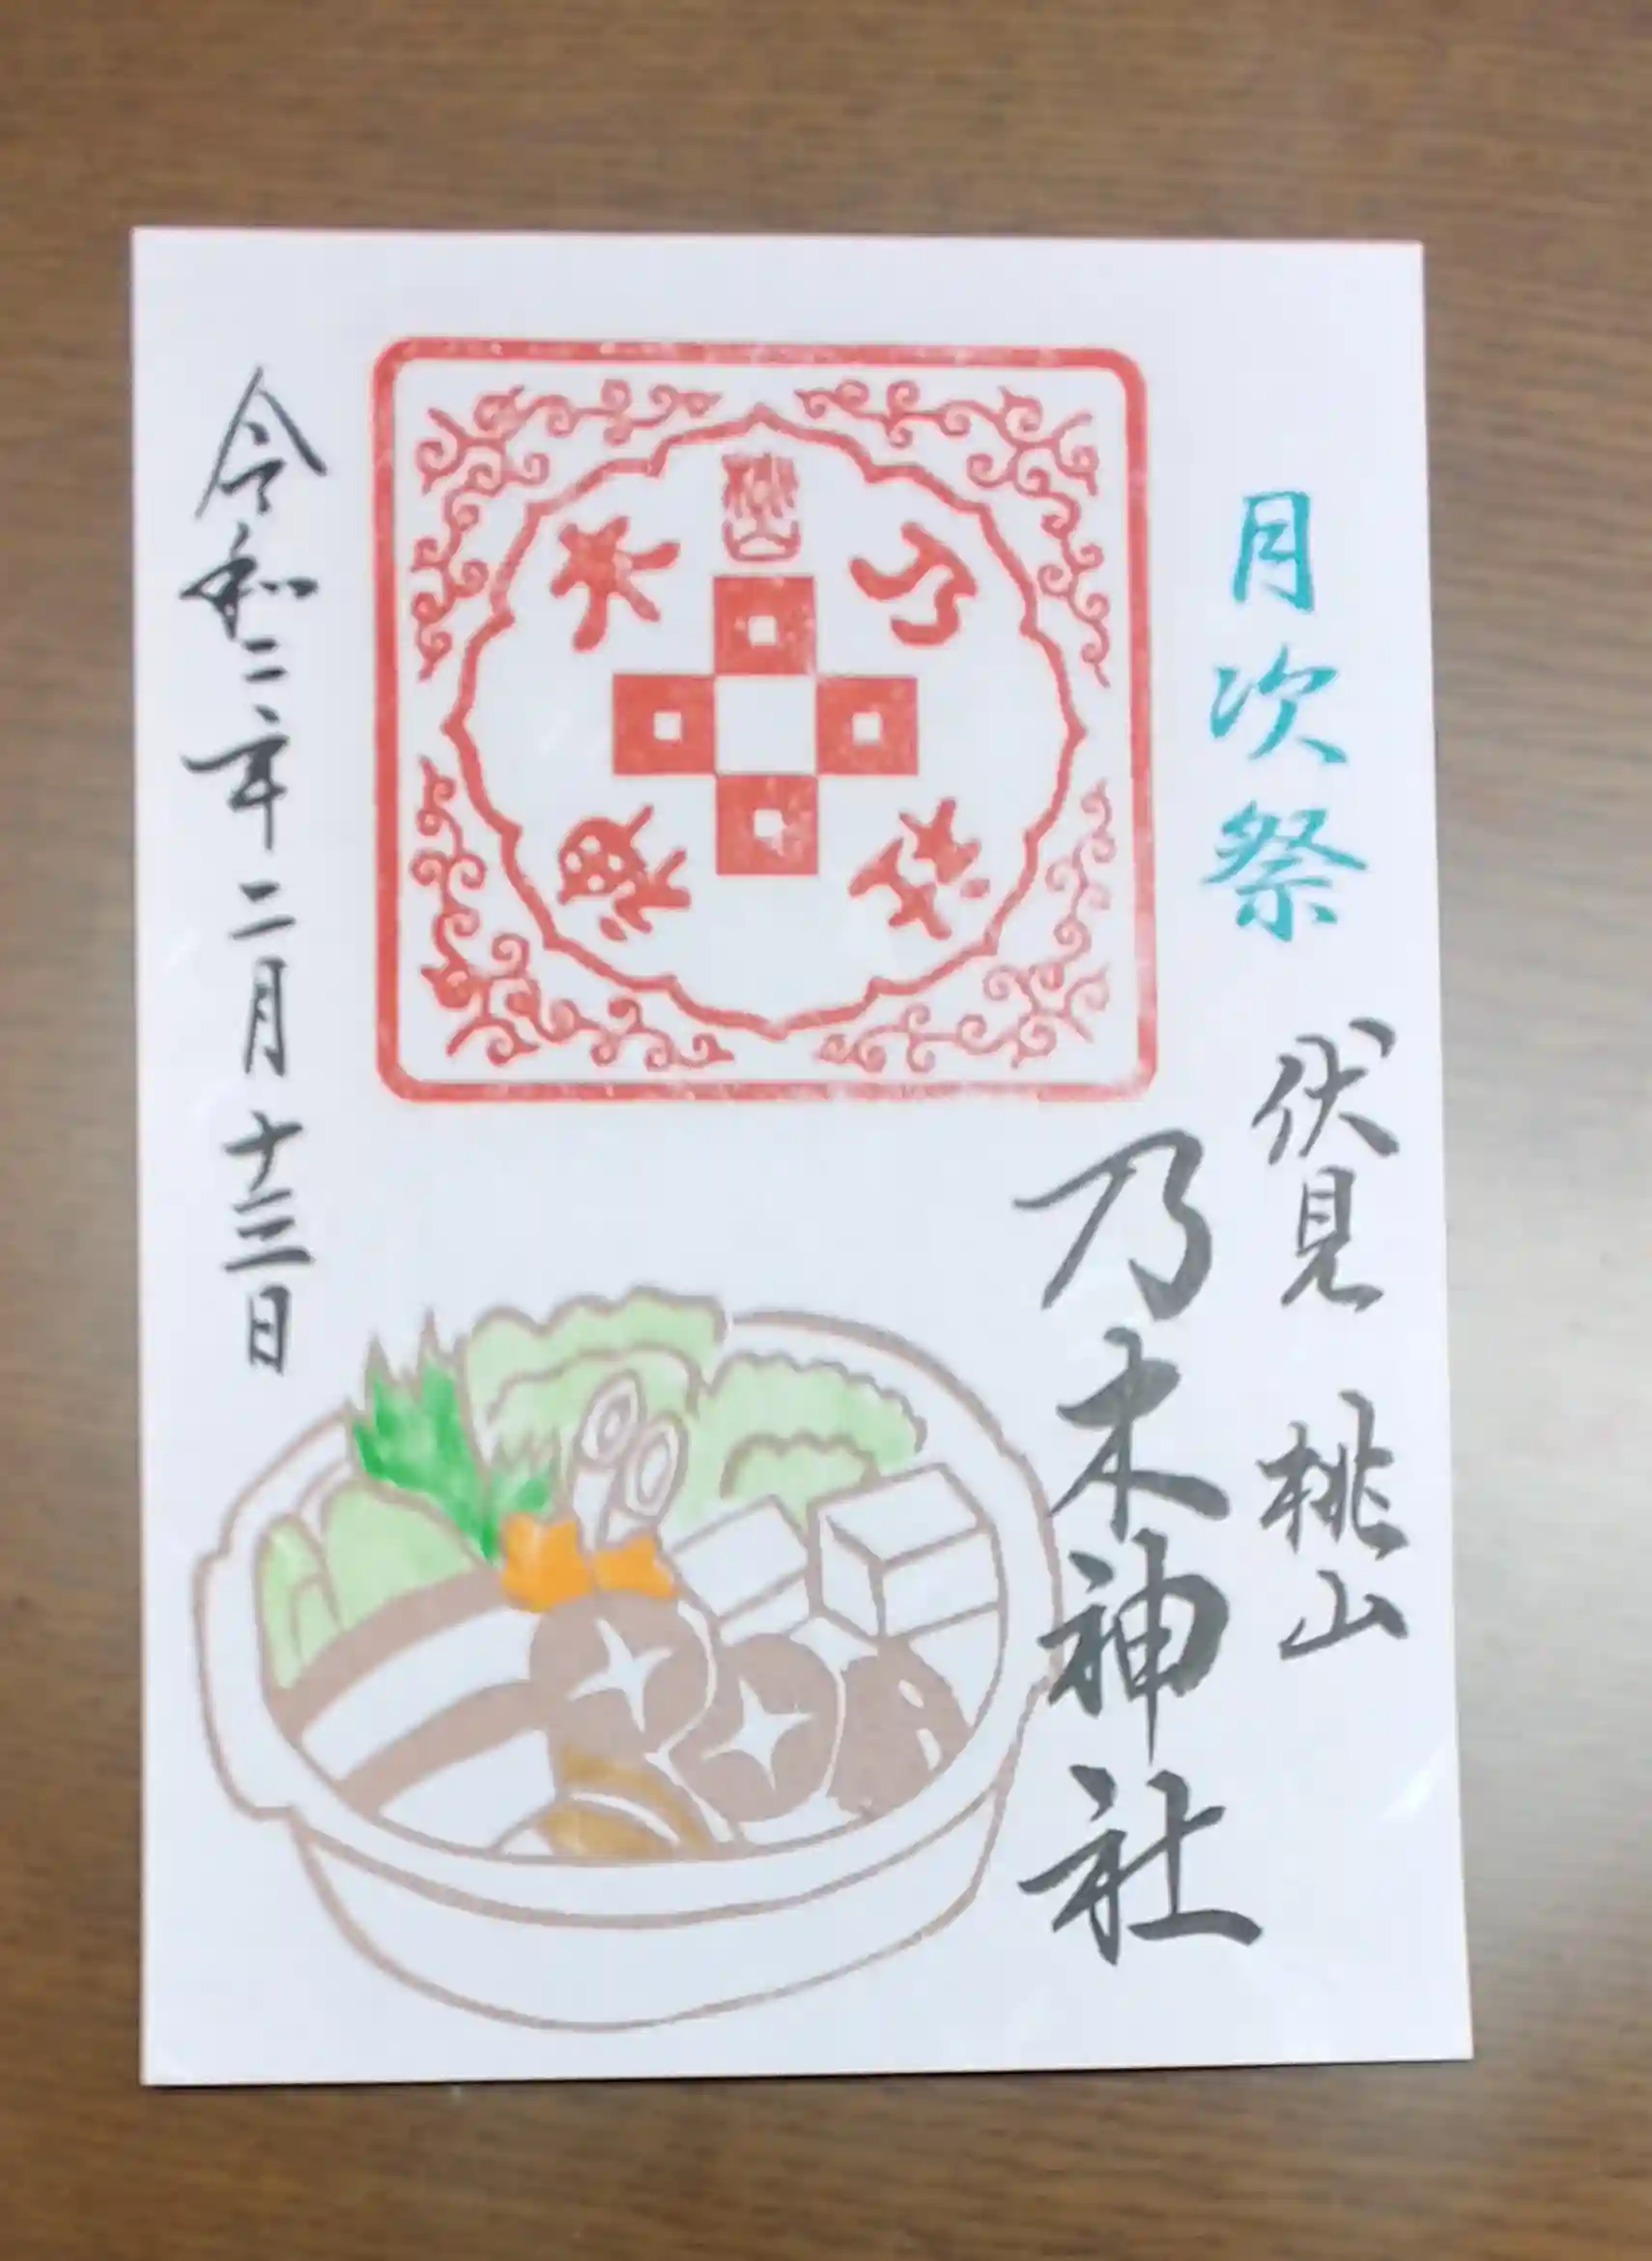 月次祭
伏見 桃山
乃木神社
桃山
乃木神社
令和二年二月十三日